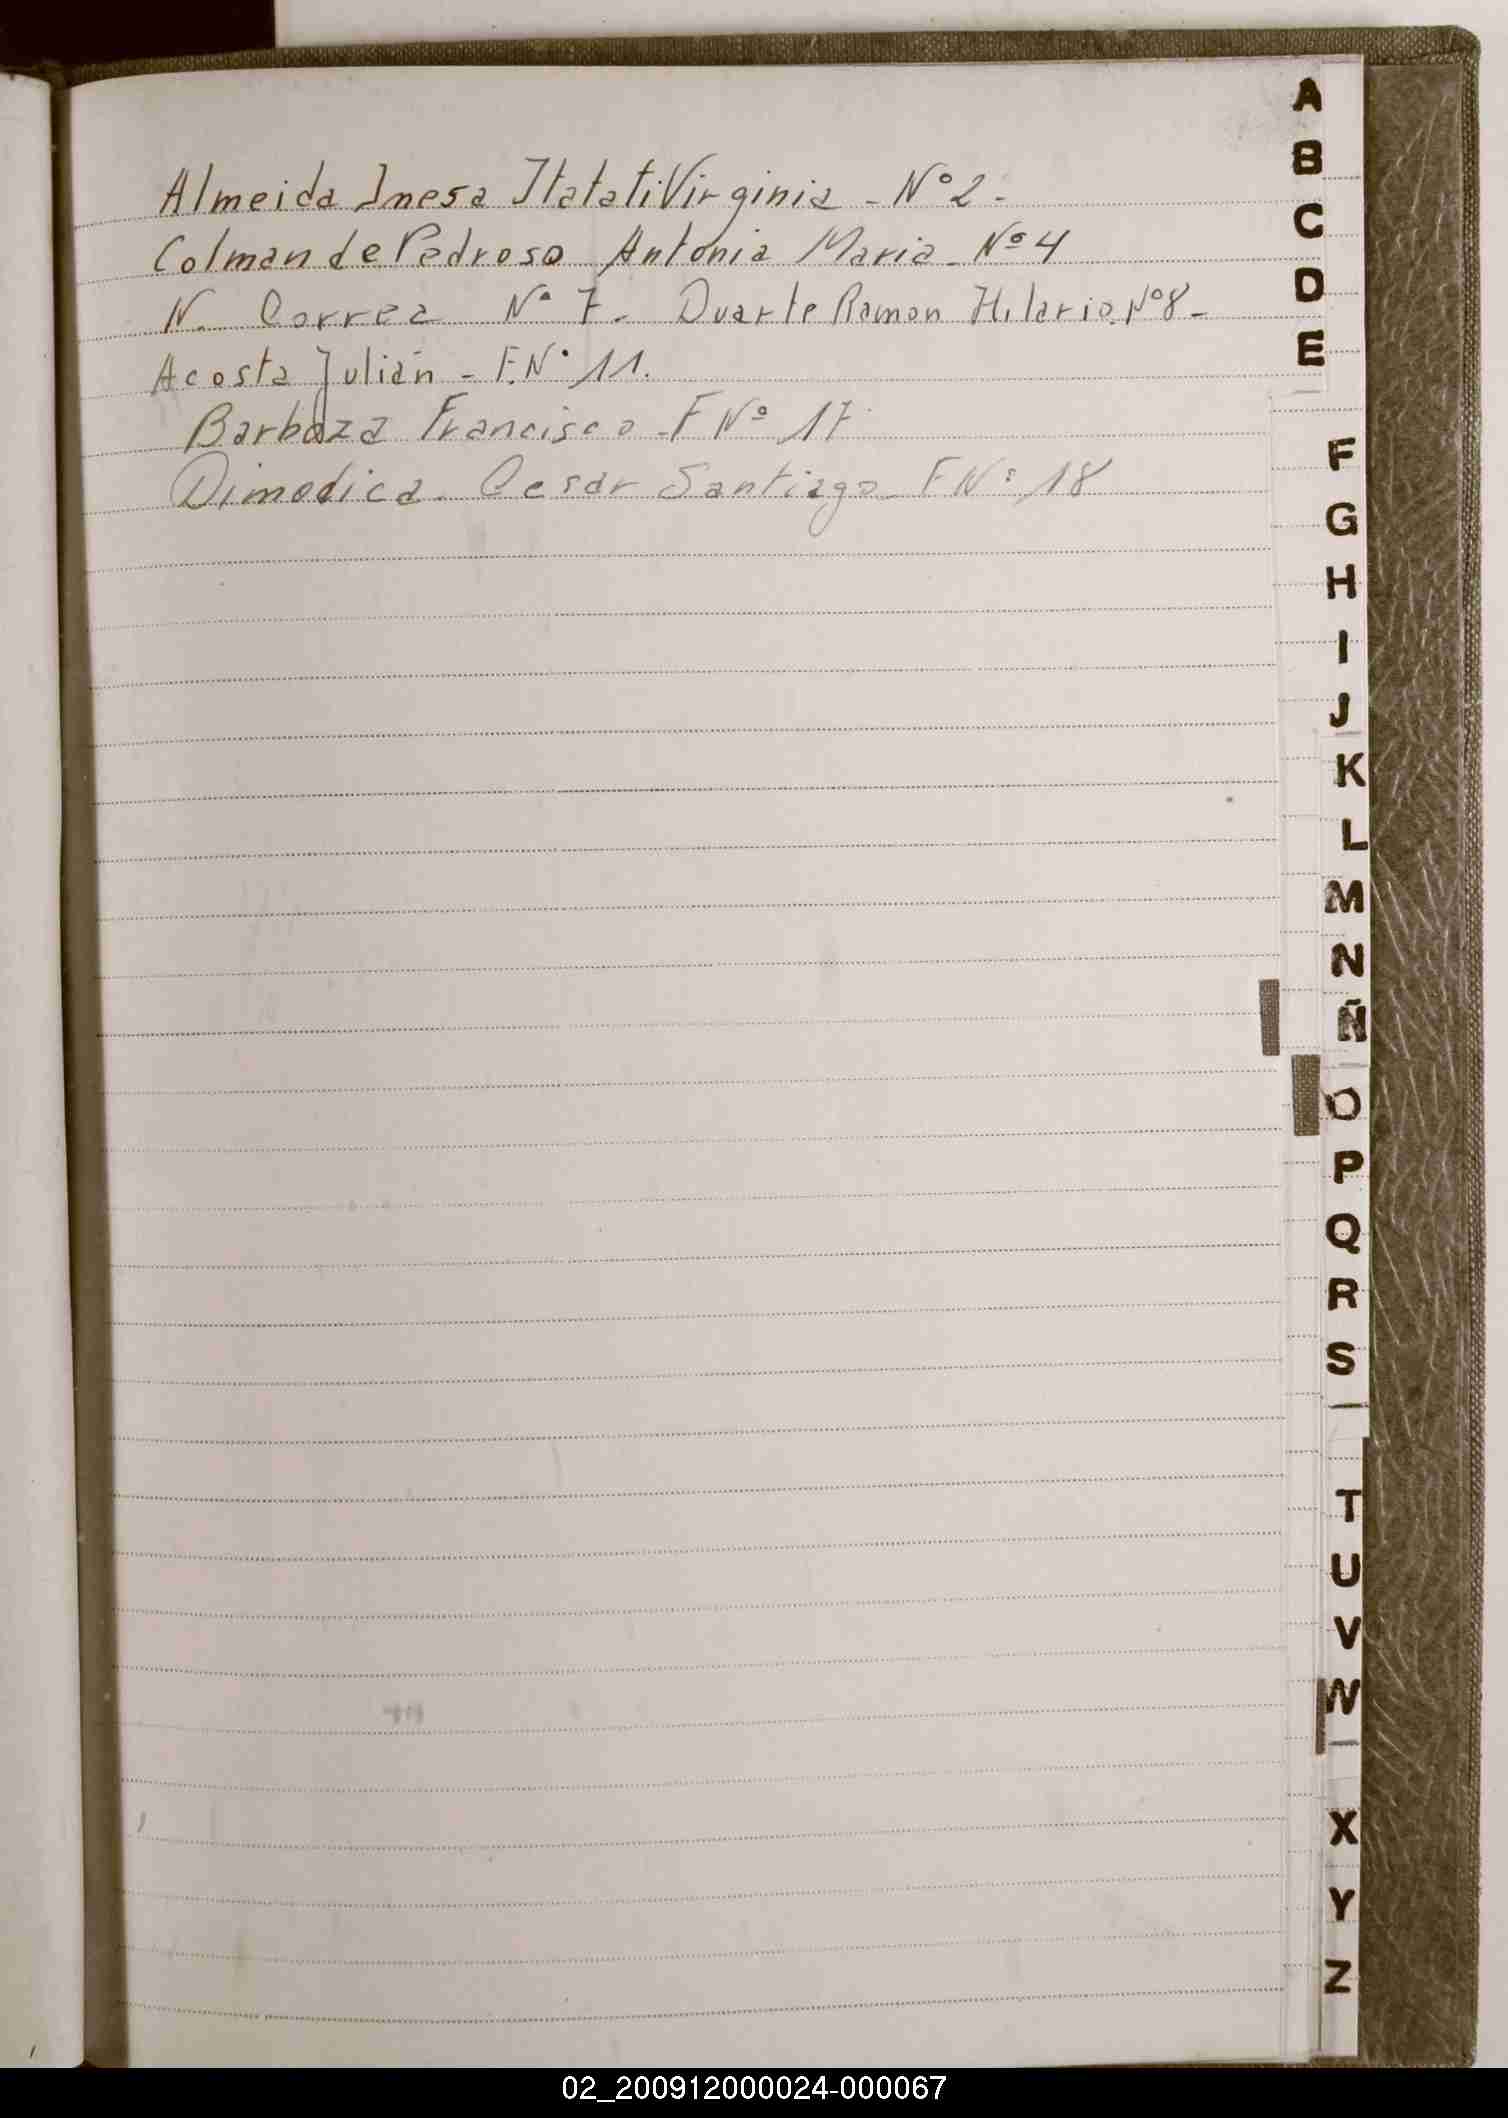 Almeida Inesa Itatati Virginia - Nº 2 -
Colman de Pedroso Antonia Maria - Nº 4
N. Correa Nº 7 - Duarte Ramon Hilario Nº 8 -
Acosta Julián - F. Nº 11.
Barboza Francisco - F Nº 17
Dimodica Cesar Santiago - F Nº 18
A
B
C
D
E
F
G
H
I
J
K
L
M
N
Ñ
O
P
Q
R
S
T
U
V
W
X
Y
Z
02_200912000024-000067